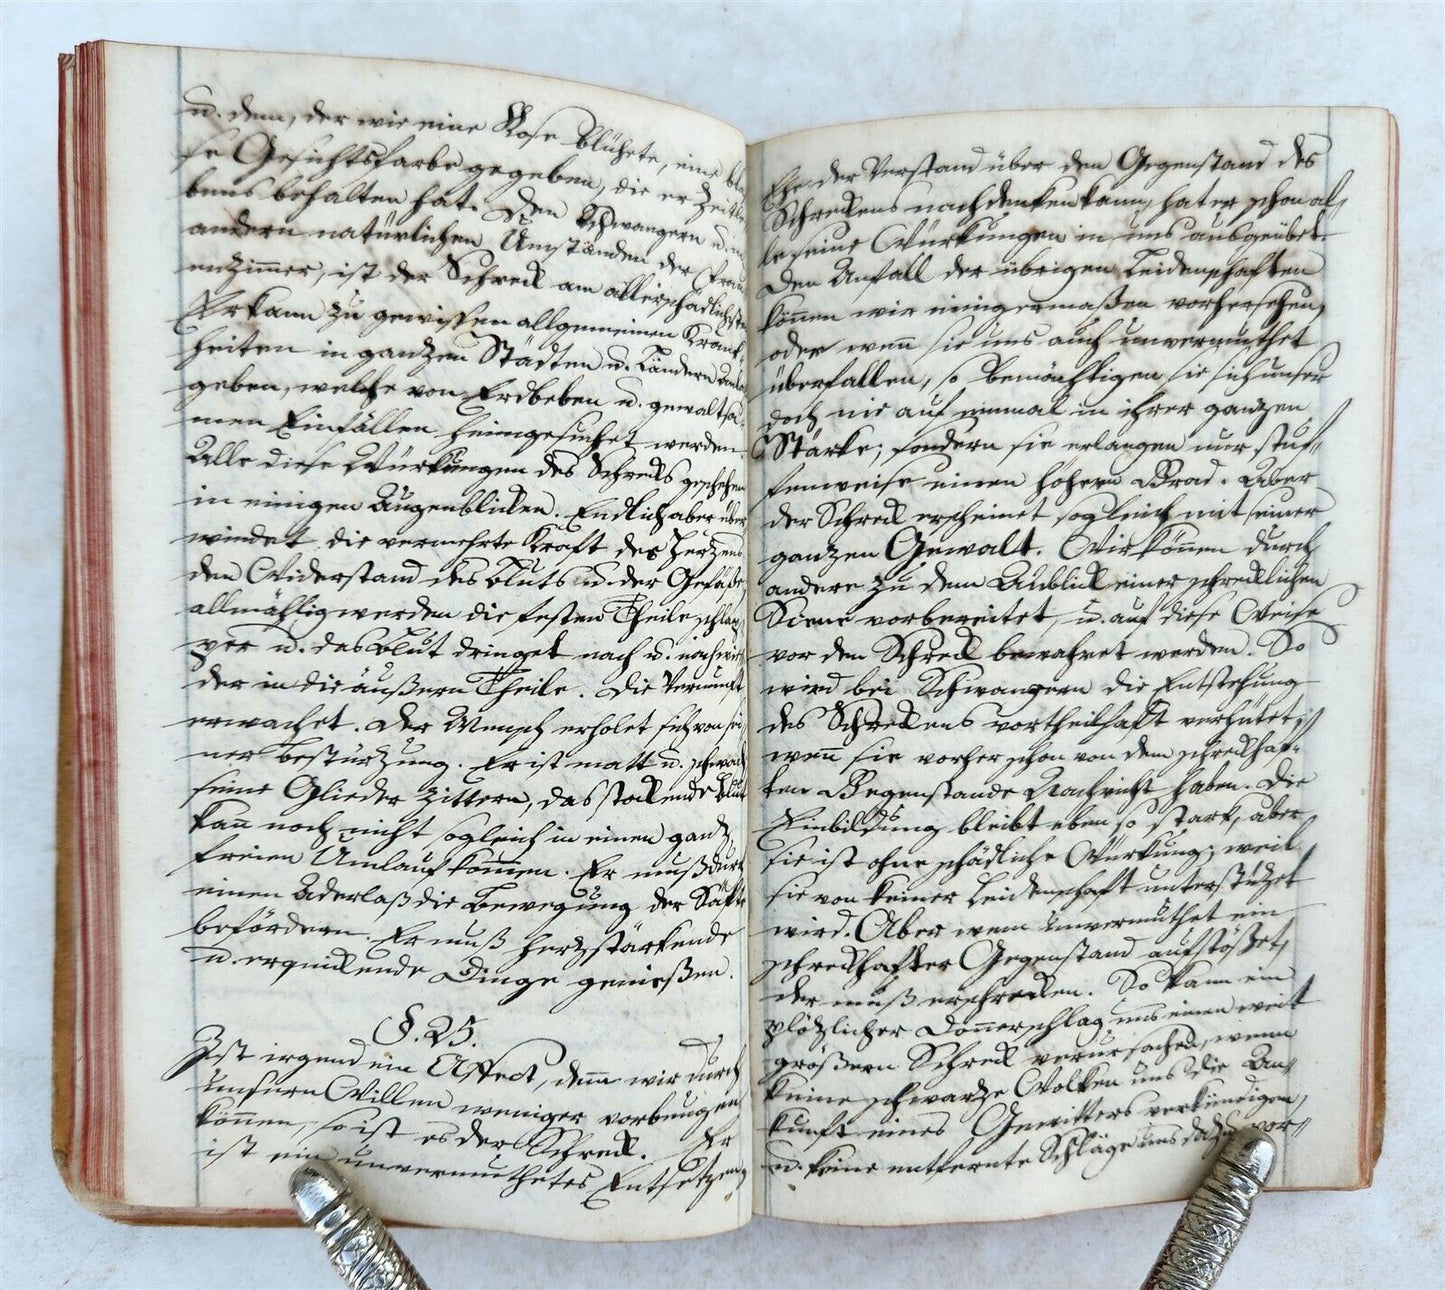 u. dem, der wie eine Rose blühete, eine blas
se Gesichtsfarbe gegeben, die er Zeitle
bens behalten hat. Den Schwangern u. in
andern natürlichen Umständen der Frau
enzimmer, ist der Schreck am allerschädlichsten
Er kann zu gewissen allgemeinen Krank-
heiten in ganzen Städten u. Ländern Anlaß
geben, welche von Erdbeben u. gewaltsa-
men Einfällen heimgesuchet werden.
Alle diese Würkungen des Schrecks geschehen
in einigen Augenblicken. Endlich aber über
windet die vermehrte Kraft des Herzens
den Widerstand des Bluts u. der Gefäße,
allmählig werden die festen Theile schlap-
per u. das Blut dringet nach u. nach wie
der in die äußern Theile. Die Vernunft
erwachet. Der Mensch erholet sich von sei
ner Bestürzung. Er ist matt u. schwach
seine Glieder zittern, das stockende Blut
kan noch nicht sogleich in einen ganz
freien Umlauf kommen. Er muß durch
einen Aderlaß die Bewegung der Säfte
befördern. Er muß herzstärkende
u. erquickende Dinge genießen.
§. 25.
Ist irgend ein Affect, dem wir durch
unsern Willen weniger vorbeugen
können, so ist es der Schreck. Er
ist ein unvermuthetes Entsetzen,
Ehe der Verstand über den Gegenstand des
Schreckens nachdenken kann, hat er schon al-
le seine Würkungen in uns ausgeübet.
Den Anfall der übrigen Leidenschaften
können wir einigermaßen vorhersehen,
oder wen sie uns auch unvermuthet
überfallen, so bemächtigen sie sich unser
doch nie auf einmal in ihrer ganzen
Stärke; sondern sie erlangen nur stuf-
fenweise einen höhern Grad. Aber
der Schreck erscheinet sogleich mit seiner
ganzen Gewalt. Wir können durch
andere zu dem Anblick einer schrecklichen
Scene vorbereitet, u. auf diese Weise
vor dem Schreck bewahret werden. So
wird bei Schwangern die Entstehung
des Schreckens vortheilhaft verhütet,
wen sie vorher schon von dem schreckhaf-
ten Gegenstande Nachricht haben. Die
Einbildung bleibt eben so stark, aber
sie ist ohne schädliche Würkung; weil
sie von keiner Leidenschaft unterstützet
wird. Aber wem unvermuthet ein
schreckhafter Gegenstand aufstößet,
der muß erschrecken. So kann ein
plötzlicher Donnerschlag uns einen weit
größern Schreck verursachen, wenn
keine schwarze Wolken uns die An-
kunft eines Gewitters verkündigen,
u. keine entfernte Schläge uns dazu vor-